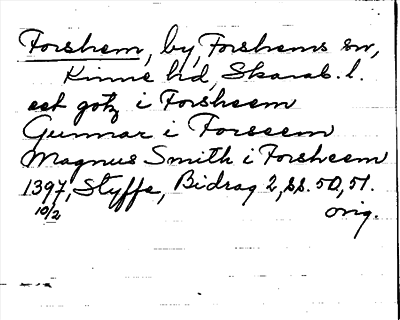 Forshem, by, Forshems sn,
Kinne hd, Skarab. l.
ett gotz i Forsheem
Gunnar i Forseem
Magnus Smith i Forsheem
1397, Styffe, Bidrag 2, ss. 50, 51.
10/2 orig.